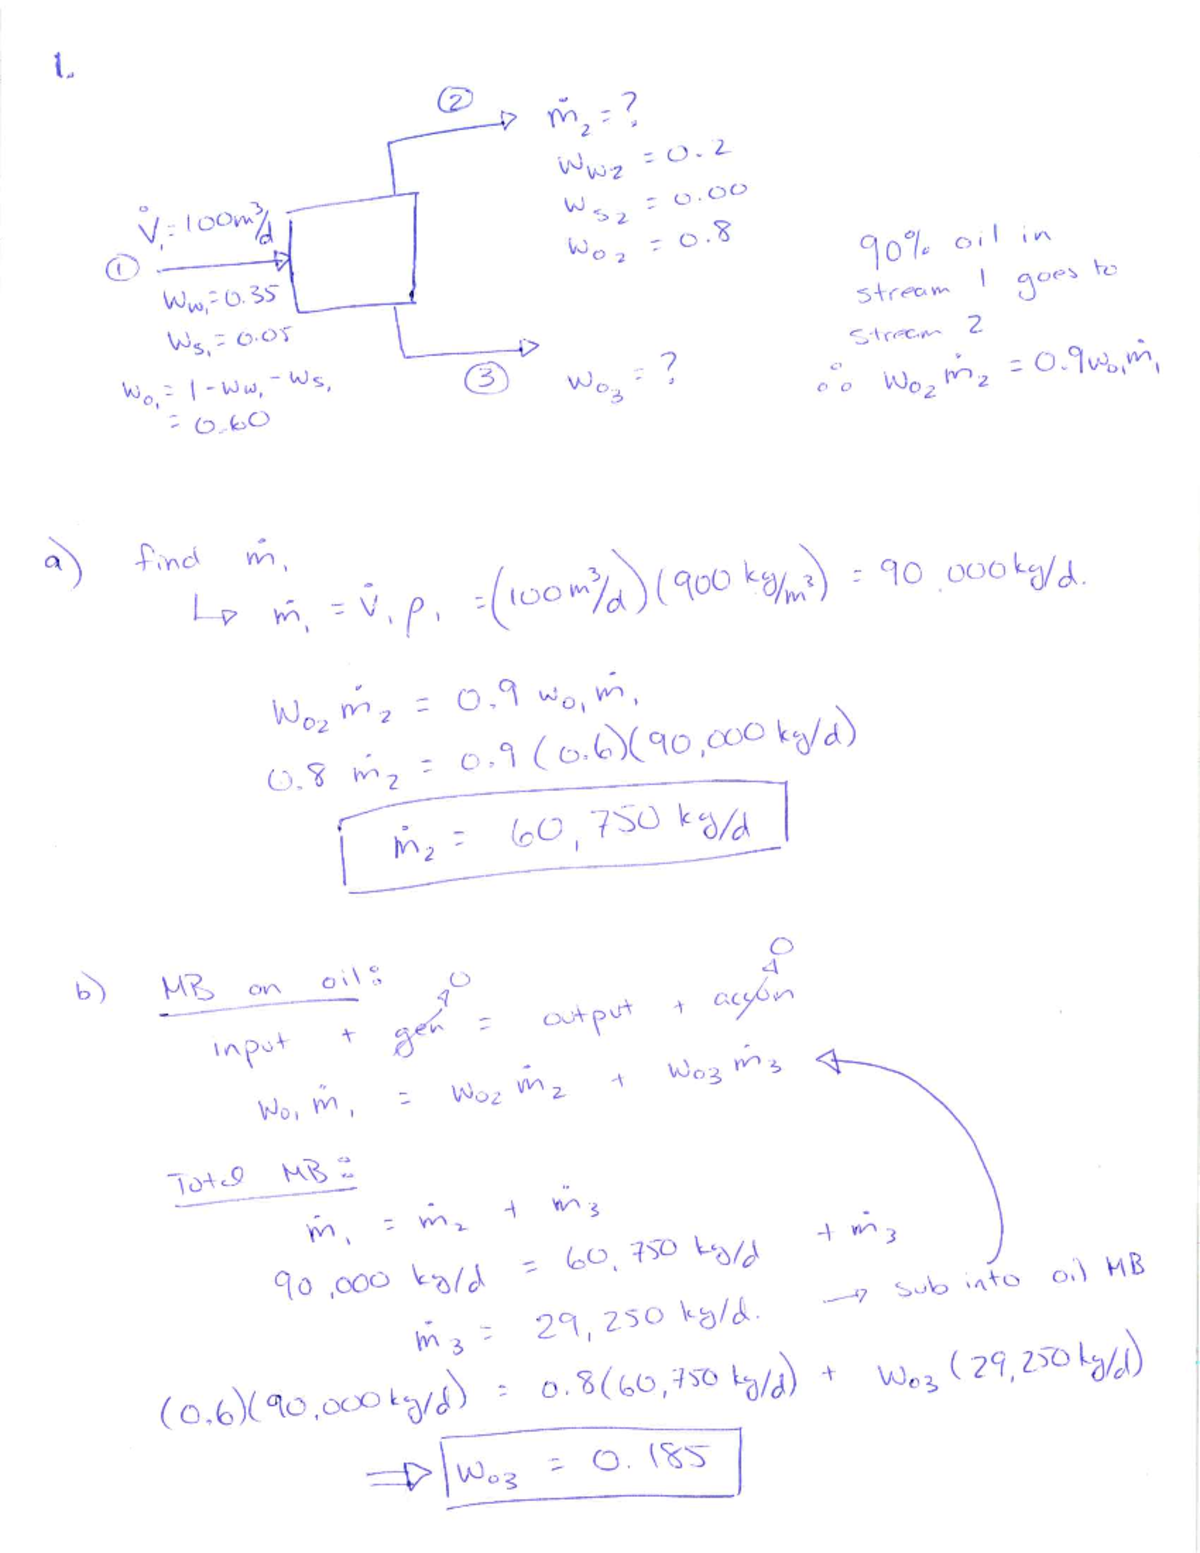 1.
②
ṁ₂ = ?
w_w2 = 0.2
w_s2 = 0.00
w_o2 = 0.8
V̊₁ = 100 m³/d
①
w_w1 = 0.35
w_s1 = 0.05
w_o1 = 1 - w_w1 - w_s1
= 0.60
③
w_o3 = ?
90% oil in
stream 1 goes to
stream 2
∴ w_o2 ṁ₂ = 0.9 w_o1 ṁ₁
a) find ṁ₁
↳ ṁ₁ = V̇₁ ρ₁ = (100 m³/d)(900 kg/m³) = 90 000 kg/d.
w_o2 ṁ₂ = 0.9 w_o1 ṁ₁
0.8 ṁ₂ = 0.9 (0.6)(90,000 kg/d)
ṁ₂ = 60,750 kg/d
b) MB on oil:
0 0
input + gen = output + accum
w_o1 ṁ₁ = w_o2 ṁ₂ + w_o3 ṁ₃
Total MB:
ṁ₁ = ṁ₂ + ṁ₃
90,000 kg/d = 60,750 kg/d + ṁ₃
ṁ₃ = 29,250 kg/d. → sub into oil MB
(0.6)(90,000 kg/d) = 0.8(60,750 kg/d) + w_o3 (29,250 kg/d)
⇒ w_o3 = 0.185